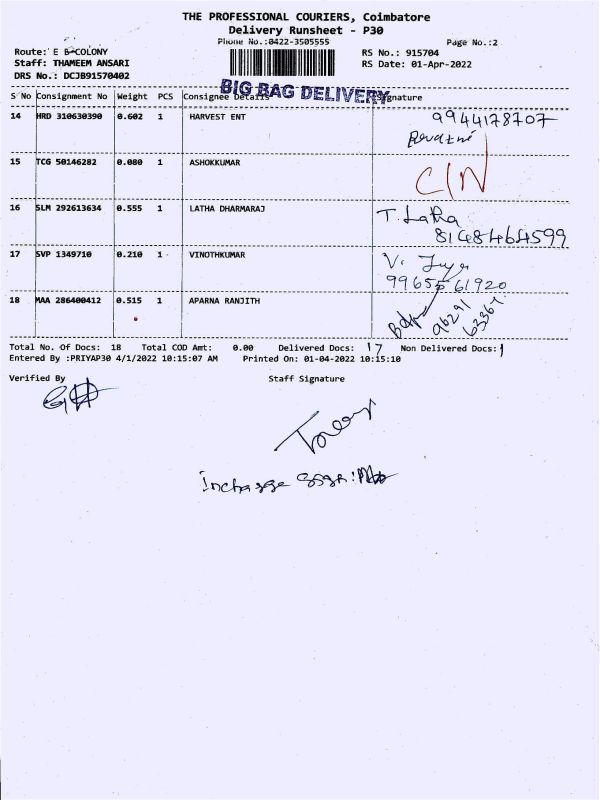 THE PROFESSIONAL COURIERS, Coimbatore
Delivery Runsheet - P30
Phone No.:0422-3505555 Page No.:2
Route: E B COLONY RS No.: 915704
Staff: THAMEEM ANSARI RS Date: 01-Apr-2022
DRS No.: DCJB91570402
BIG BAG DELIVERY
S No Consignment No Weight PCS Consignee Details Signature
14 HRD 310630390 0.602 1 HARVEST ENT 9944178707
15 TCG 50146282 0.080 1 ASHOKKUMAR C/N
16 SLM 292613634 0.555 1 LATHA DHARMARAJ T. Latha
8148464599
17 SVP 1349710 0.210 1 VINOTHKUMAR
18 MAA 286400412 0.515 1 APARNA RANJITH 96291
63367
Total No. Of Docs: 18 Total COD Amt: 0.00 Delivered Docs: 17 Non Delivered Docs: 1
Entered By :PRIYAP30 4/1/2022 10:15:07 AM Printed On: 01-04-2022 10:15:10
Verified By Staff Signature
Incharge Sign: